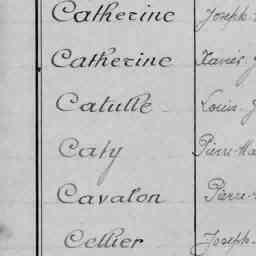 Catherine Joseph
Catherine Xavier
Catulle Louis
Caty Pierre
Cavalon Pierre
Cellier Joseph